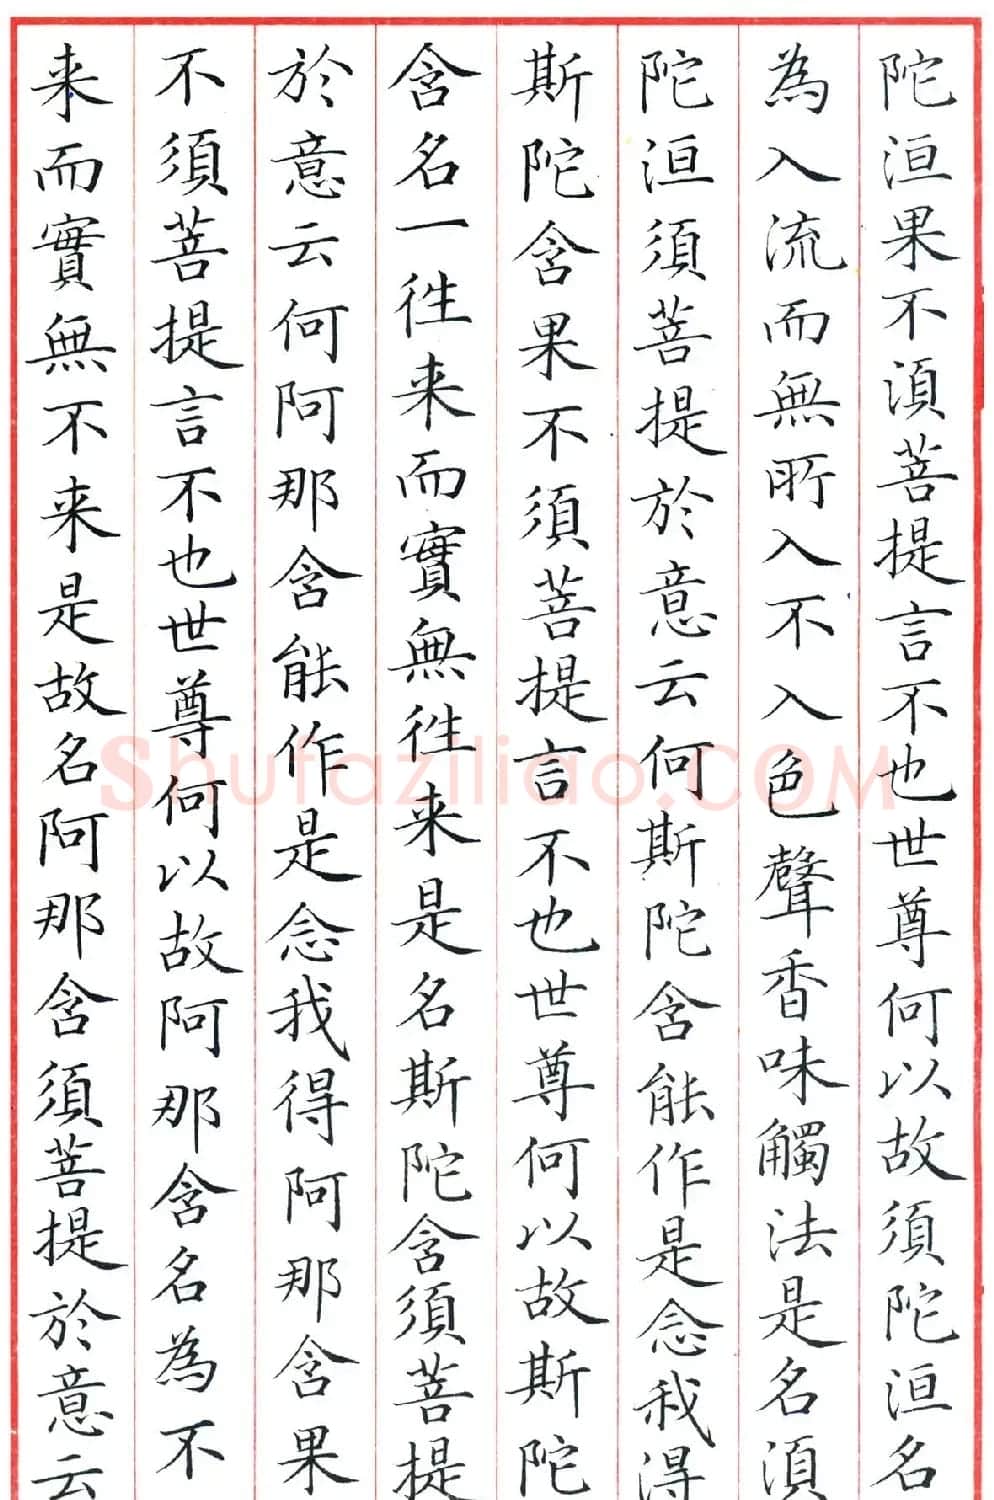 陀洹果不湏菩提言不也世尊何以故須陀洹名
為入流而無所入不入色聲香味觸法是名湏
陀洹須菩提於意云何斯陀含能作是念我得
斯陀含果不須菩提言不也世尊何以故斯陀
含名一往来而實無往来是名斯陀含須菩提
於意云何阿那含能作是念我得阿那含果
不須菩提言不也世尊何以故阿那含名為不
来而實無不来是故名阿那含須菩提於意云
Shufaziliao.COM